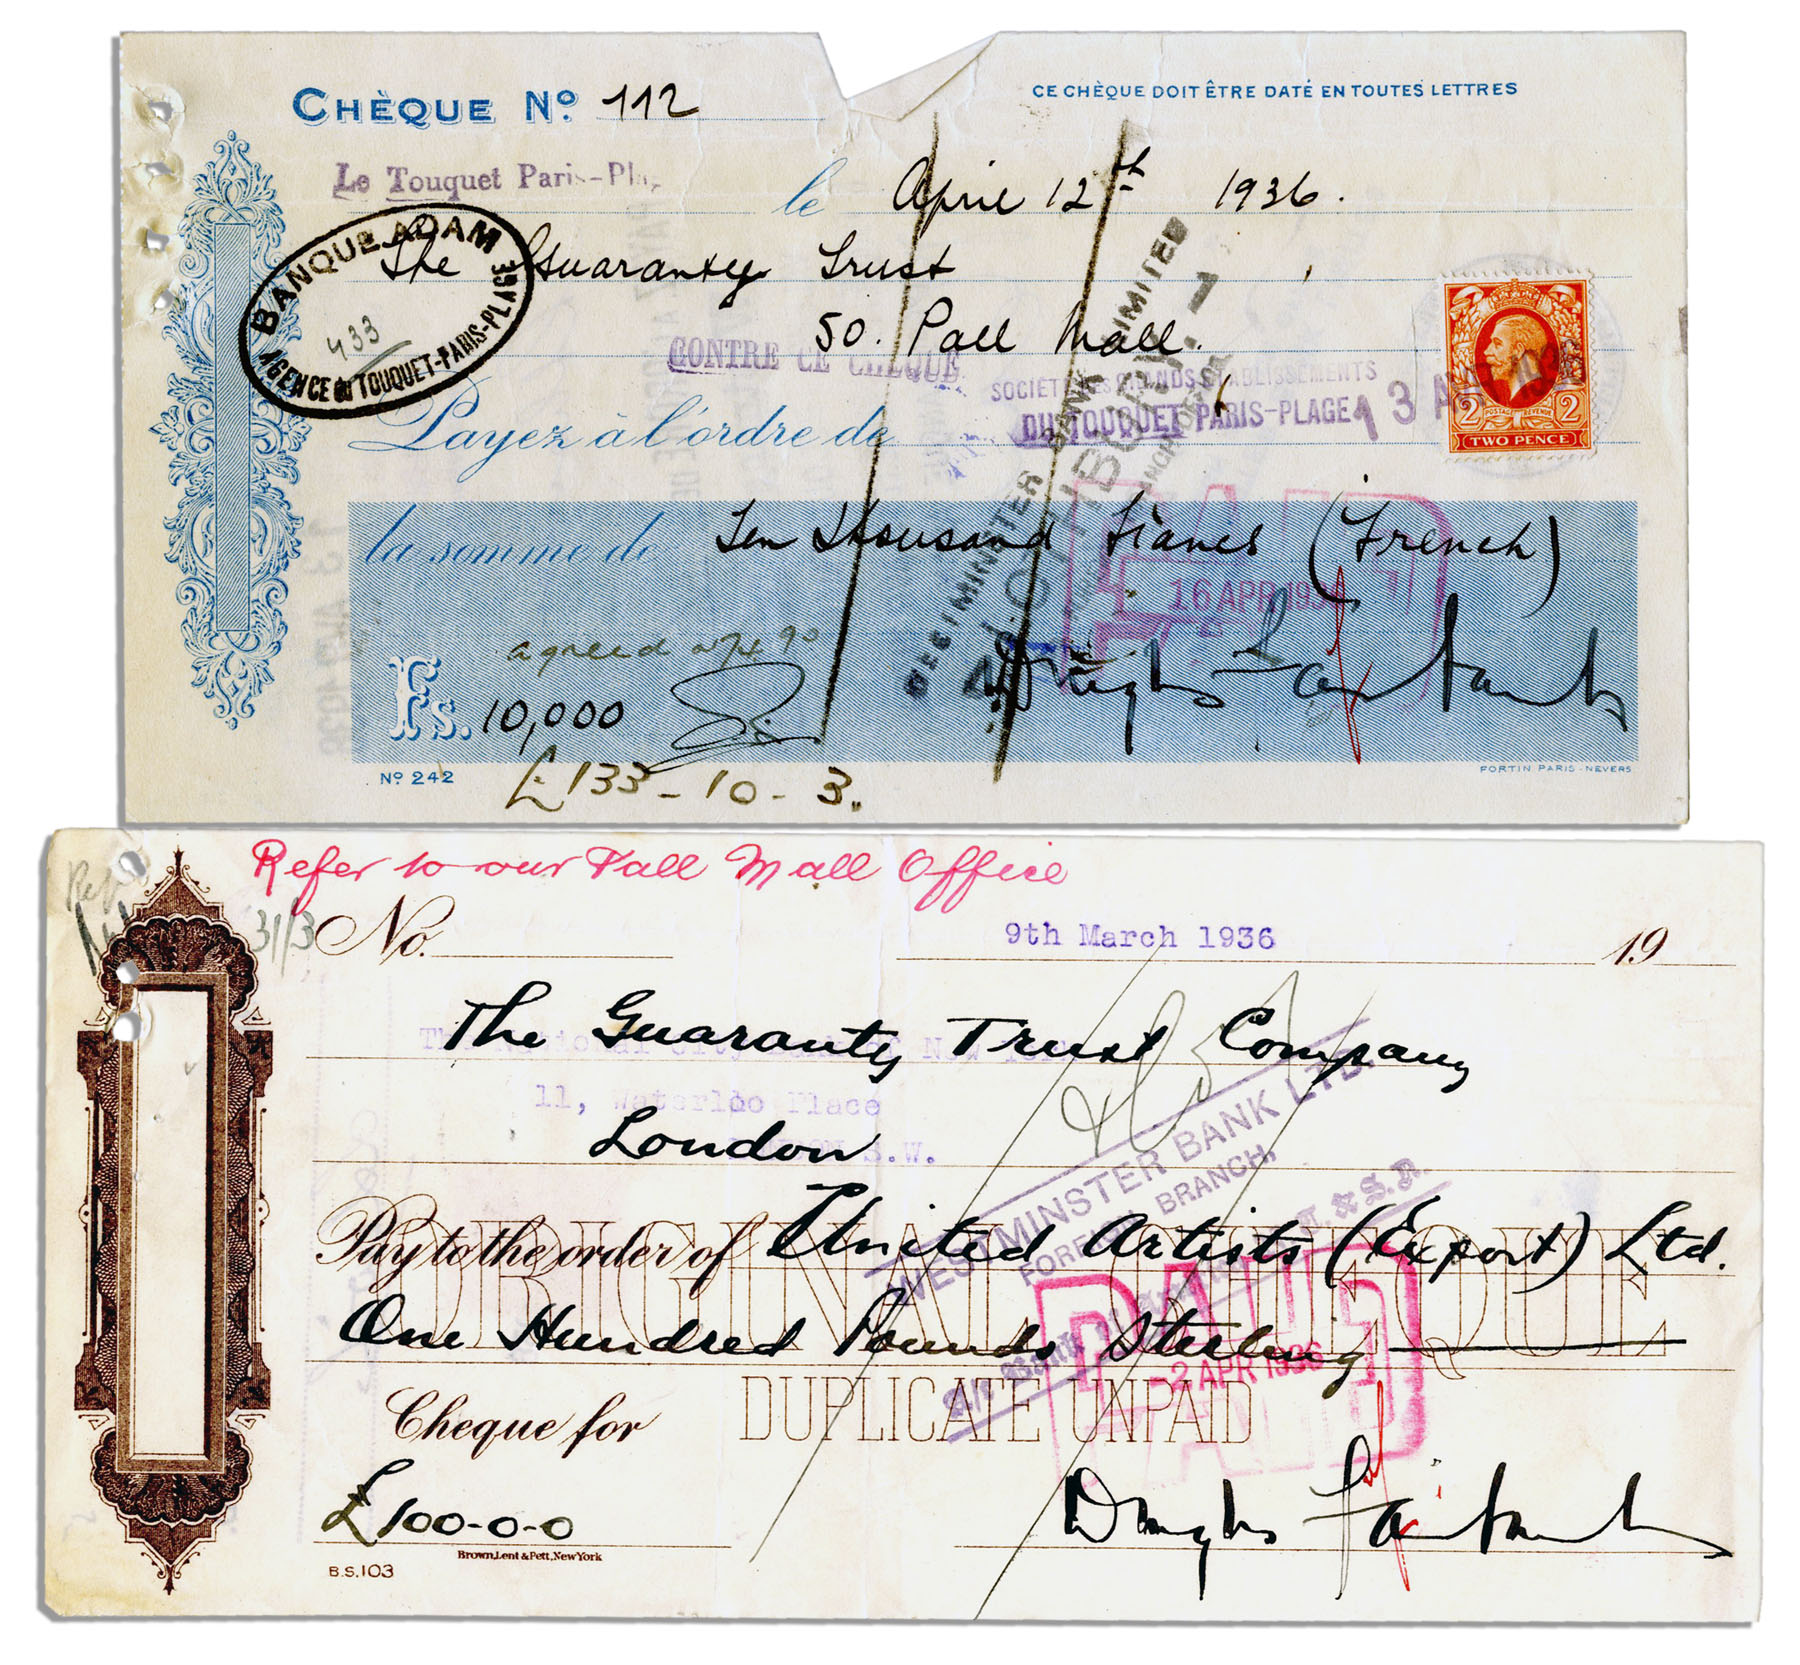 CHÈQUE Nº 112
CE CHÈQUE DOIT ÊTRE DATÉ EN TOUTES LETTRES
Le Touquet Paris-Pla
le April 12th 1936.
BANQUE ADAM
433
AGENCE DU TOUQUET-PARIS-PLAGE
The Guaranty Trust
50. Pall Mall.
CONTRE CE CHEQUE
SOCIÉTÉ DES GRANDS ETABLISSEMENTS
DU TOUQUET PARIS-PLAGE
13 1936
2 POSTAGE REVENUE 2
TWO PENCE
Payez à l'ordre de
WESTMINSTER BANK LIMITED
PAID
16 APR 1936
la somme de Ten thousand Francs (French)
agreed
Fs. 10,000
Douglas Fairbanks
£133-10-3.
Nº 242
FORTIN PARIS-NEVERS
Refer to our Pall Mall Office
31/3
No.
9th March 1936
19
The Guaranty Trust Company
The National City New
11, Waterloo Place
London
S.W.
WESTMINSTER BANK LTD.
FOREIGN BRANCH,
Pay to the order of United Artists (Export) Ltd.
ORIGINAL CHEQUE
One Hundred Pounds Sterling
PAID
2 APR 1936
Cheque for
DUPLICATE UNPAID
£100-0-0
Douglas Fairbanks
Brown, Lent & Pett, New York
B.S.103